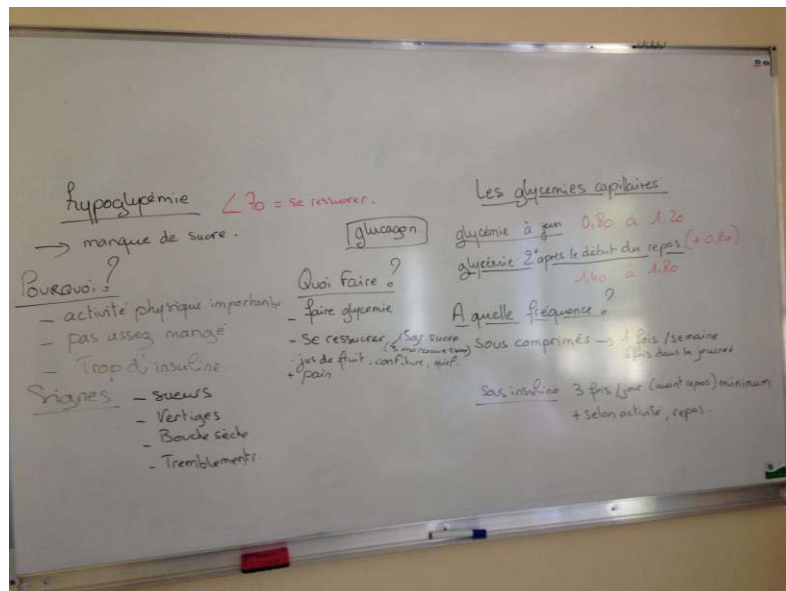 hypoglycémie < 70 = se ressucrer.
→ manque de sucre.
Pourquoi ?
- activité physique importante
- pas assez mangé
- Trop d'insuline
Signes - sueurs
- Vertiges
- Bouche sèche
- Tremblements
glucagon
Quoi faire ?
- faire glycemie
- Se ressucrer (15g sucre
(3 morceaux
- jus de fruit, confiture, miel.
+ pain
Les glycemies capillaires
glycémie à jeun 0,80 à 1,20
glycémie 2h après le début du repas (+0,60)
1,40 à 1,80
A quelle fréquence ?
Sous comprimés → 1 fois / semaine
fois dans la journée
Sous insuline 3 fois / jour (avant repas) minimum
+ selon activité, repas..